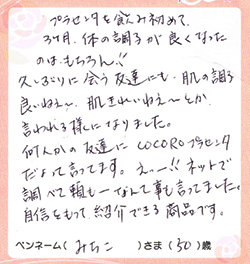 プラセンタを飲み初めて、
3ヶ月、体の調子が良くなった
のはもちろん!!
久しぶりに会う友達にも、肌の調子
良いねぇ〜、肌きれいねぇ〜とか、
言われる様になりました。
何人かの友達にCOCOROプラセンタ
だよって言ってます。えっー!!ネットで
調べて頼もーなんて事も言ってました。
自信をもって紹介できる商品です。
ペンネーム( みちこ )さま(50)歳